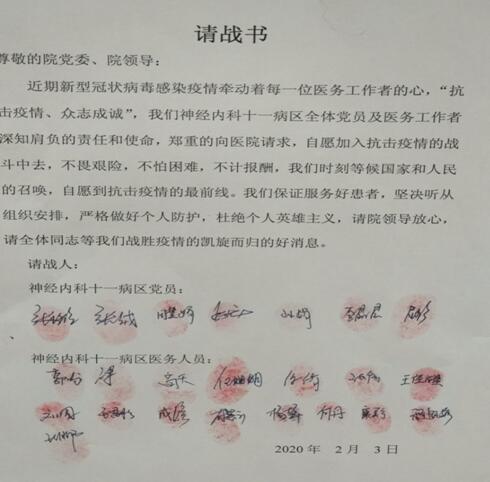 请战书
尊敬的院党委、院领导：
近期新型冠状病毒感染疫情牵动着每一位医务工作者的心，“抗
击疫情、众志成诚”，我们神经内科十一病区全体党员及医务工作者
深知肩负的责任和使命，郑重的向医院请求，自愿加入抗击疫情的战
斗中去，不畏艰险，不怕困难，不计报酬，我们时刻等候国家和人民
的召唤，自愿到抗击疫情的最前线。我们保证服务好患者，坚决听从
组织安排，严格做好个人防护，杜绝个人英雄主义，请院领导放心，
请全体同志等我们战胜疫情的凯旋而归的好消息。
请战人：
神经内科十一病区党员：
神经内科十一病区医务人员：
2020 年 2 月 3 日